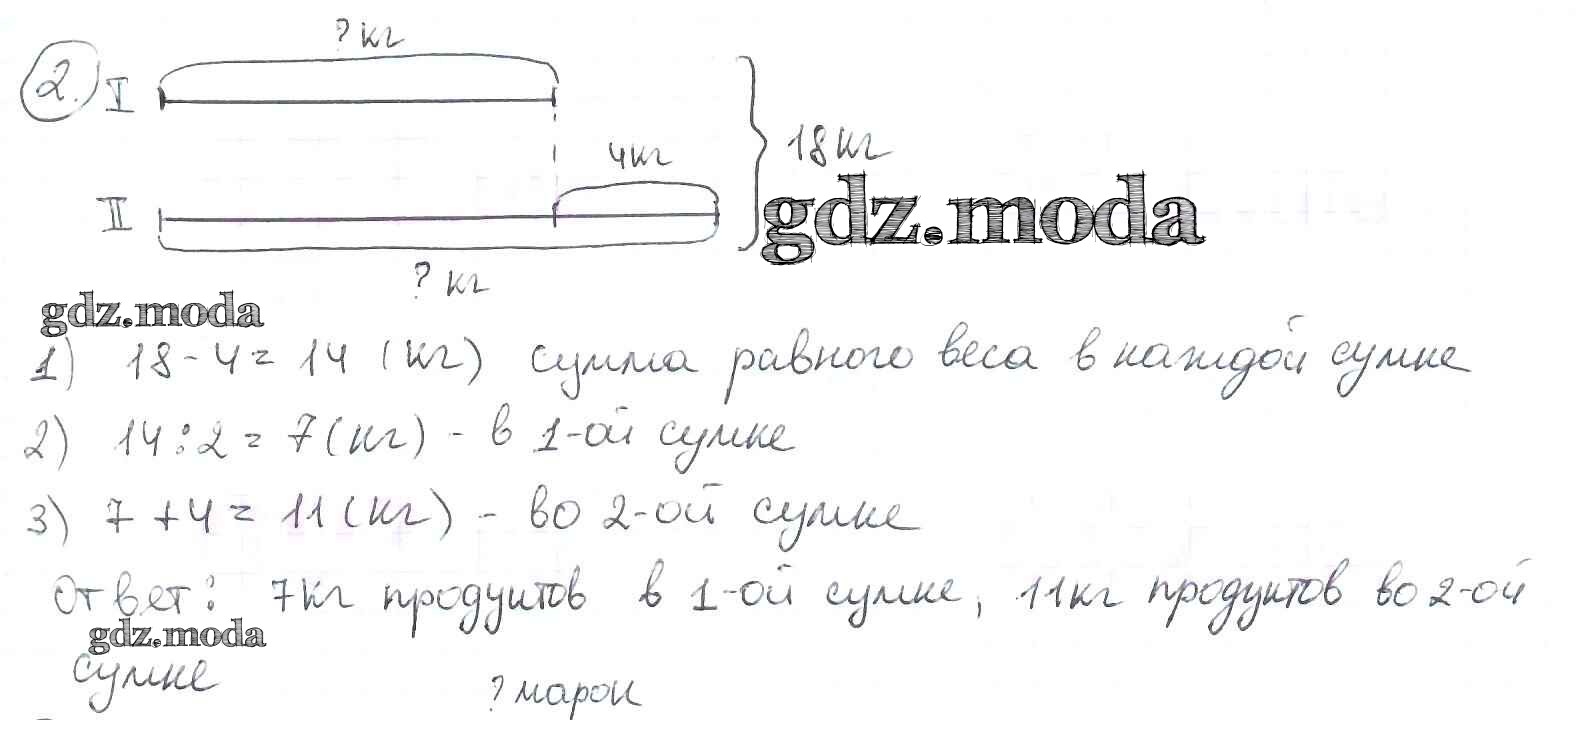 ? кг
2. I
4кг
18кг
II
gdz.moda
? кг
gdz.moda
1) 18 - 4 = 14 (кг) сумма равного веса в каждой сумке
2) 14 : 2 = 7 (кг) - в 1-ой сумке
3) 7 + 4 = 11 (кг) - во 2-ой сумке
Ответ: 7кг продуктов в 1-ой сумке, 11кг продуктов во 2-ой
gdz.moda
сумке
? марок